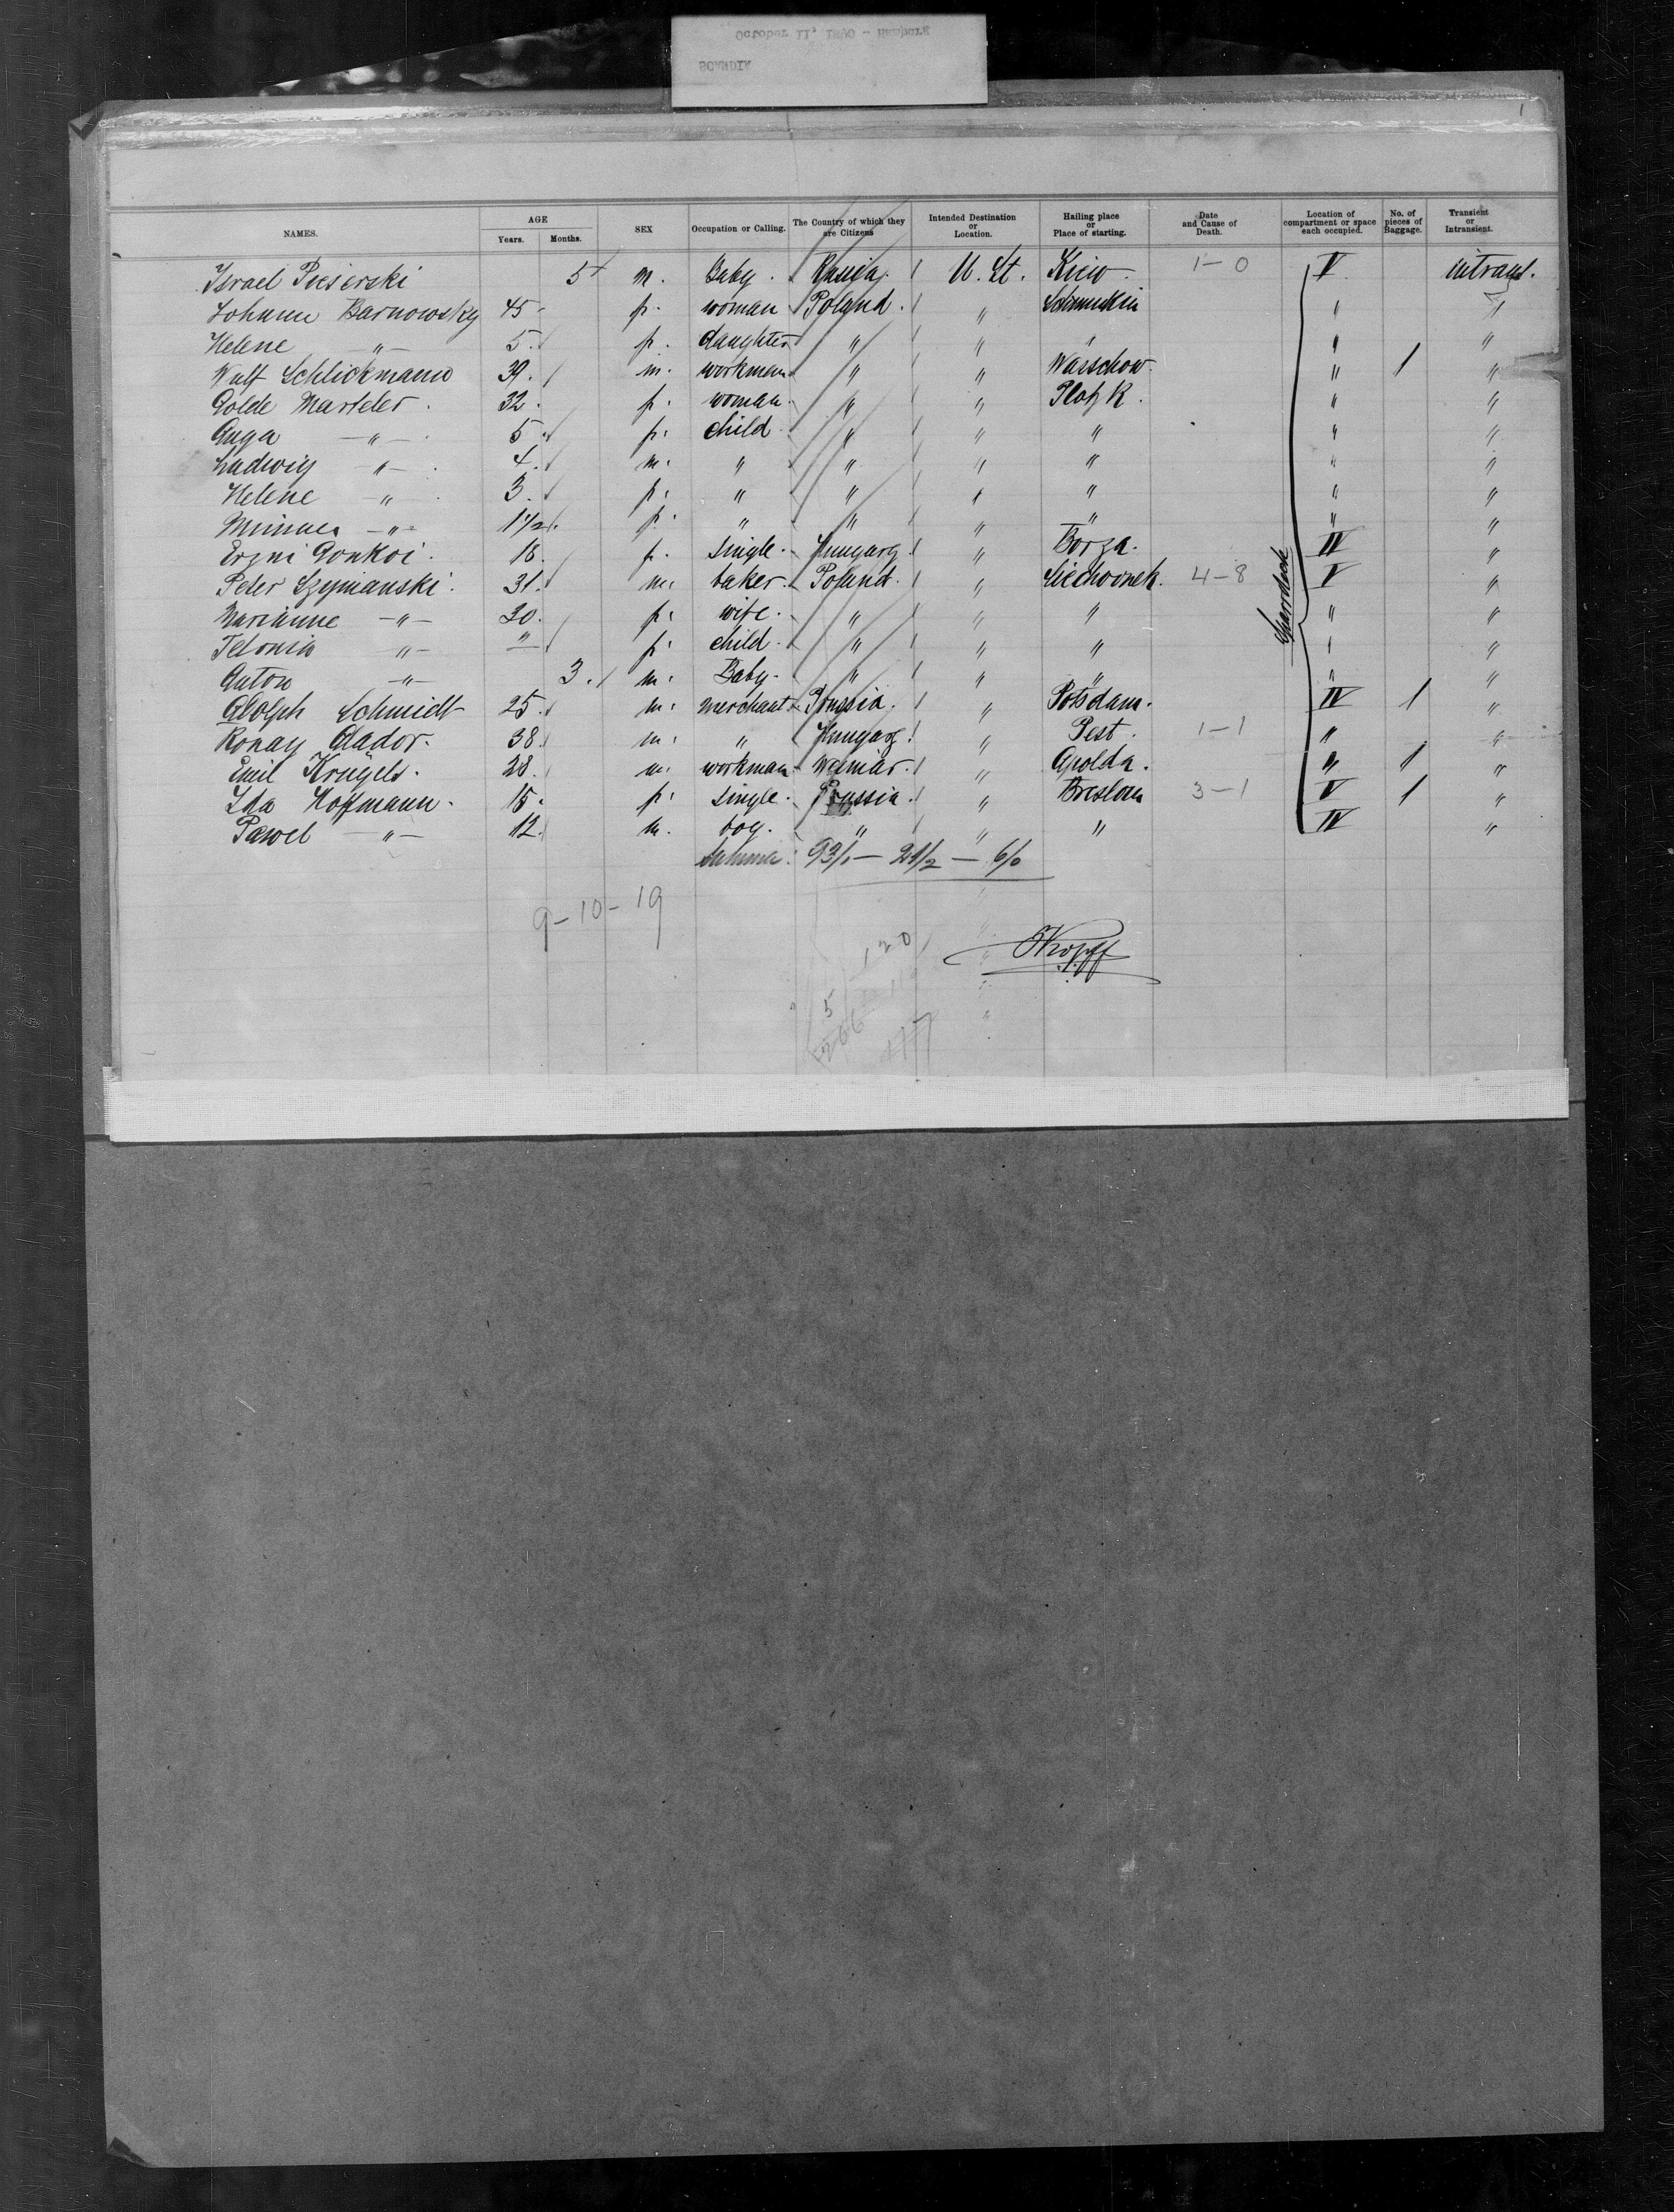 October 11, 1890 - Hamburg
SCANDIA
1
NAMES. AGE Years. Months. SEX Occupation or Calling. The Country of which they are Citizens Intended Destination or Location. Hailing place or Place of starting. Date and Cause of Death. Location of compartment or space each occupied. No. of pieces of Baggage. Transient or Intransient.
Israel 5 m. Baby. Russia. U. St. Kiew 1-0 V intrans.
Barnowsky 45 f. woman Poland. " " "
Helene -"- 5. f. daughter " " " " "
Wulf Schlickmann 39. m. workman " " Warschow. " 1 "
Golde Marteler. 32. f. woman. " " Plotzk. " "
-"- 5 f. child. " " " " "
Ludwig -"- 4. m. " " " " " "
Helene -"- 3. f. " " " " " "
-"- 1 1/2. f. " " " " " "
Gonkoi. 18. f. single. Hungary. " Borza. IV "
Peter Szymanski. 31. m. baker. Poland. " 4-8 V "
Marianne -"- 30. f. wife. " " " " "
-"- " f. child. " " " " "
Anton -"- 3. m. Baby. " " " " "
Adolph Schmidt 25. m. merchant Prussia. " Potsdam. IV 1 "
Ronay Alador. 38. m. " Hungary. " Pest. 1-1 " "
Emil Krügels. 28. m. workman Weimar. " Apolda. " 1 "
Ida Hoffmann. 15. f. single. Prussia. " Breslau 3-1 V 1 "
Pawel -"- 12. m. boy. " " " IV "
Summa: 93/1 - 21/2 - 6/0
9-10-19
120
5
266
Kropff